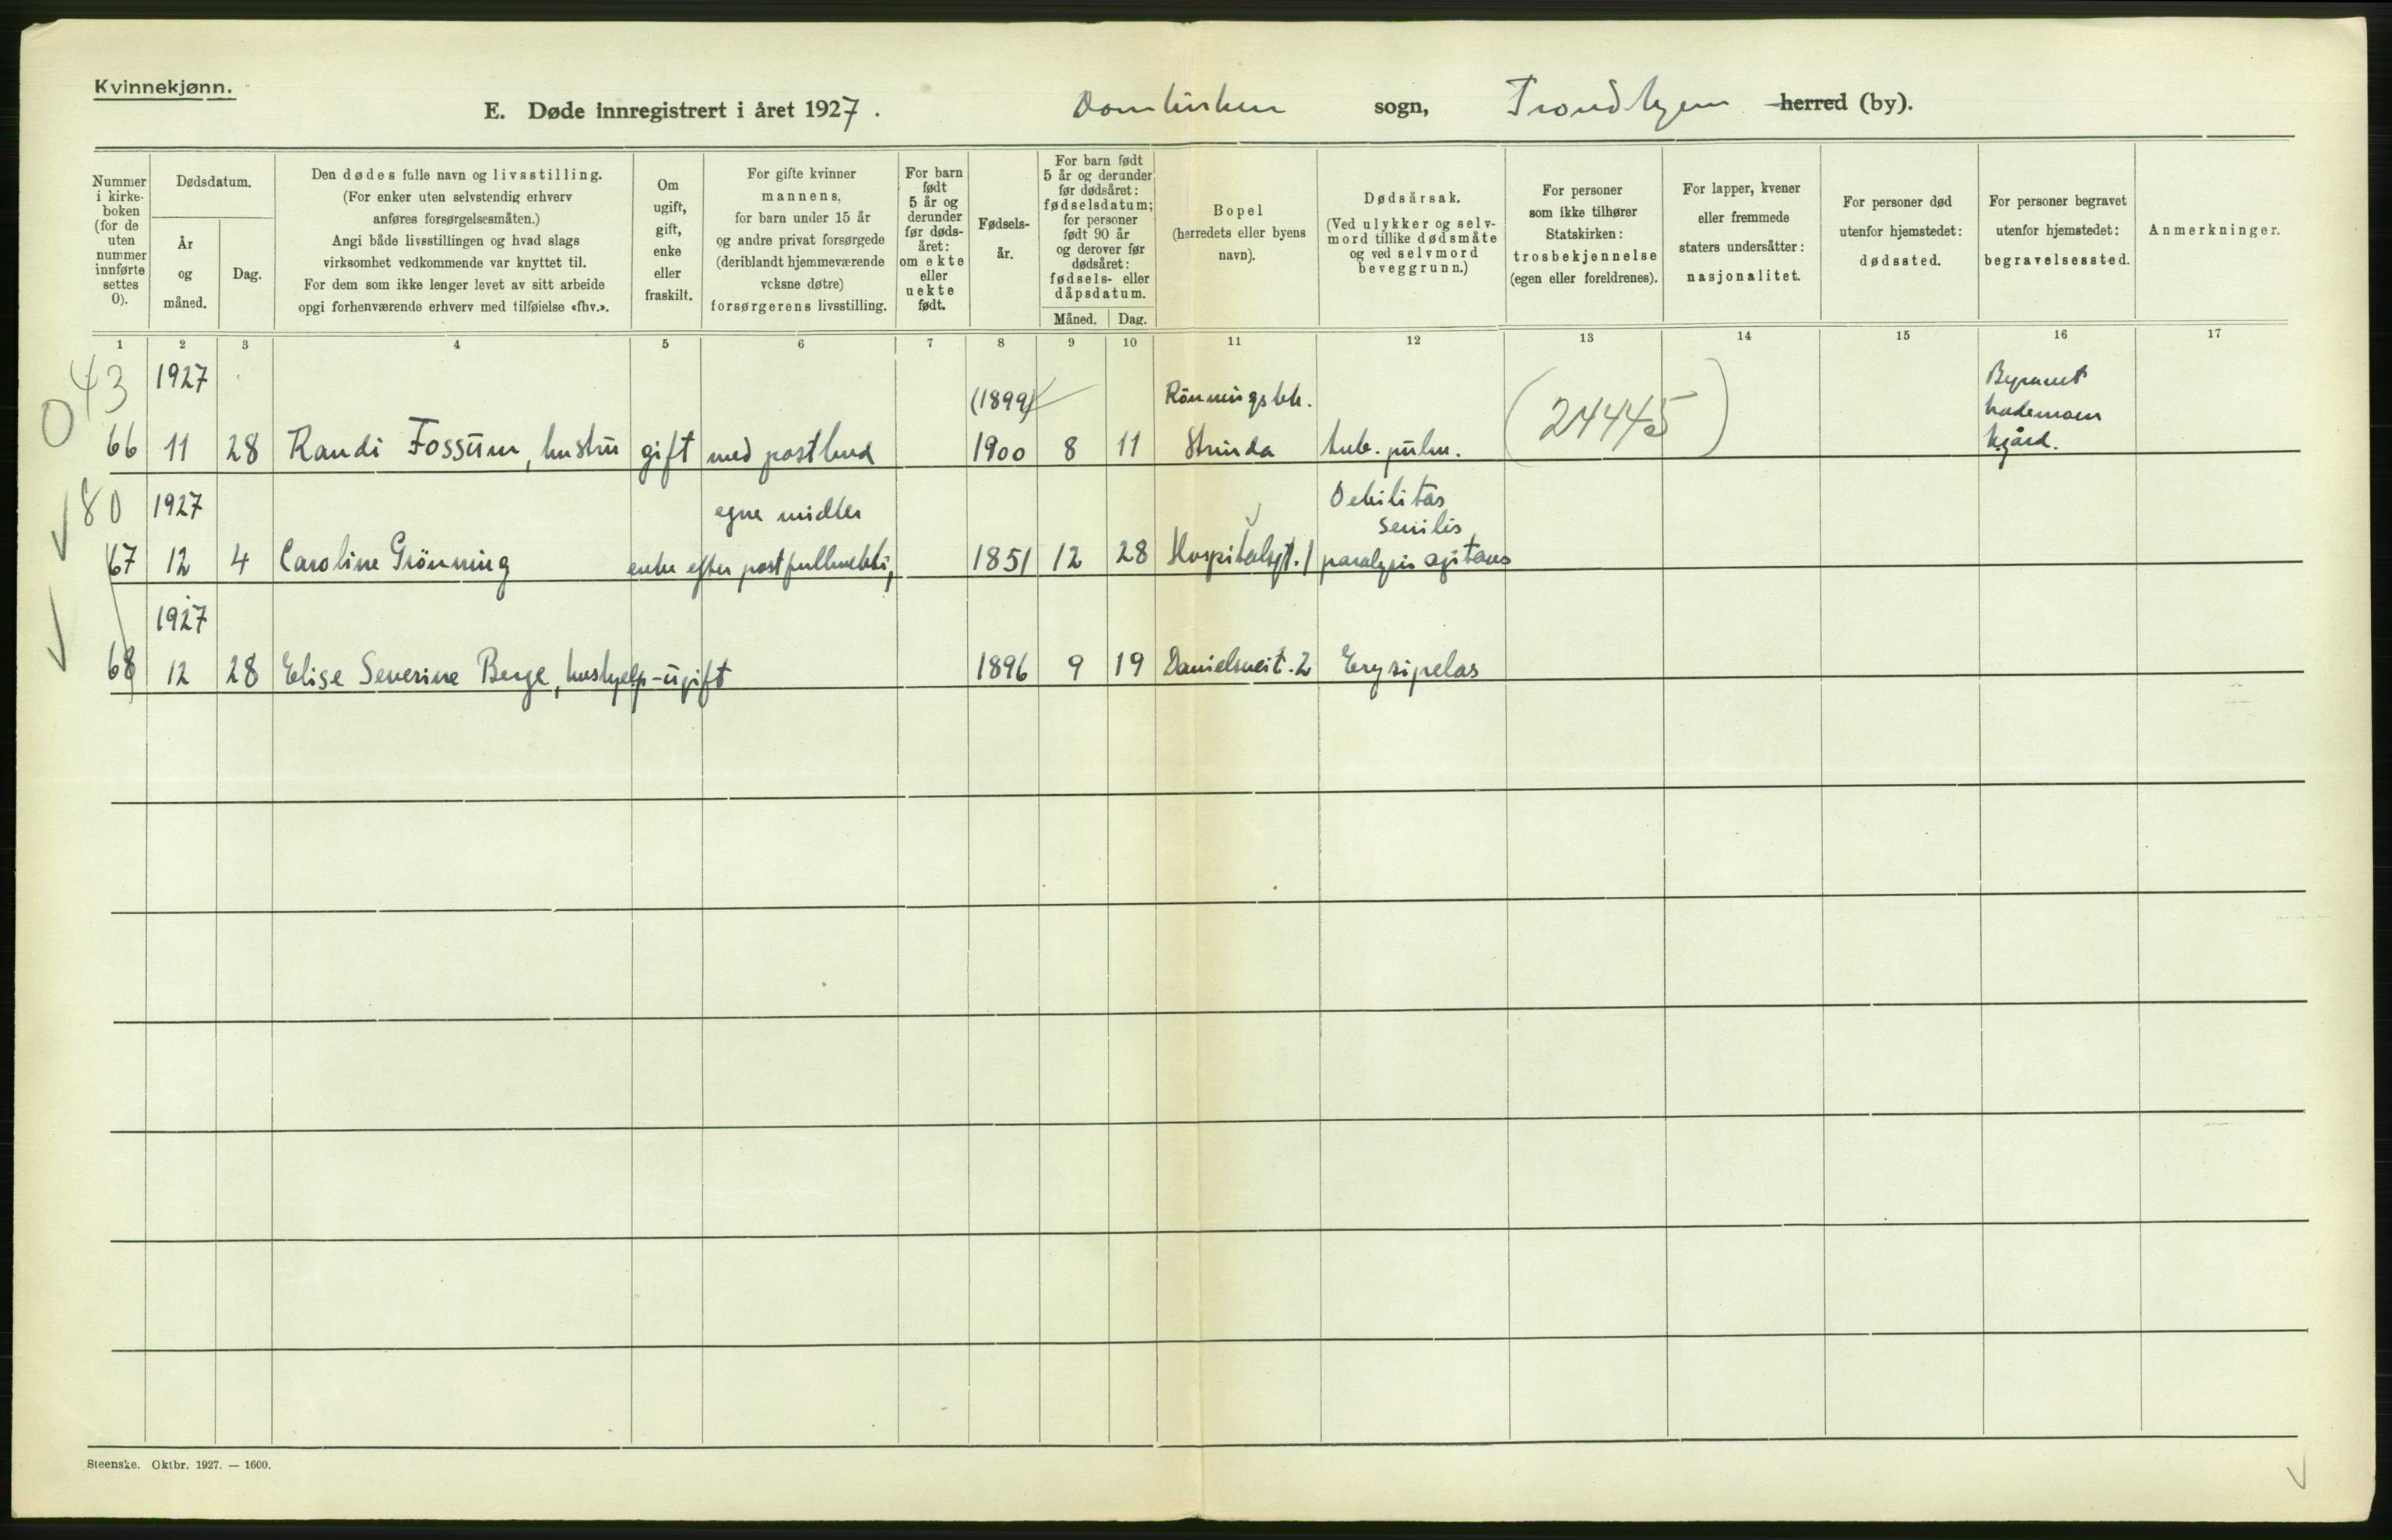 Kvinnekjønn.
E. Døde innregistrert i året 1927. Domkirken sogn, Trondhjem herred (by).
Nummer i kirke- boken (for de uten nummer innførte settes 0).
Dødsdatum.
År og måned.
Dag.
Den dødes fulle navn og livsstilling.
(For enker uten selvstendig erhverv
anføres forsørgelsesmåten.)
Angi både livsstillingen og hvad slags
virksomhet vedkommende var knyttet til.
For dem som ikke lenger levet av sitt arbeide
opgi forhenværende erhverv med tilføielse «fhv.».
Om
ugift,
gift,
enke
eller
fraskilt.
For gifte kvinner
mannens,
for barn under 15 år
og andre privat forsørgede
(deriblandt hjemmeværende
vcksne døtre)
forsørgerens livsstilling.
For barn
født
5 år og
derunder
før døds-
året:
om ekte
eller
uekte
født.
Fødsels-
år.
For barn født
5 år og derunder
før dødsåret:
fødselsdatum;
for personer
født 90 år
og derover før
dødsåret:
fødsels- eller
dåpsdatum.
Måned. Dag.
Bopel
(herredets eller byens
navn).
Dødsårsak.
(Ved ulykker og selv-
mord tillike dødsmåte
og ved selvmord
beveggrunn.)
For personer
som ikke tilhører
Statskirken:
trosbekjennelse
(egen eller foreldrenes).
For lapper, kvener
eller fremmede
staters undersåtter:
nasjonalitet.
For personer død
utenfor hjemstedet:
dødssted.
For personer begravet
utenfor hjemstedet:
begravelsessted.
Anmerkninger.
1 2 3 4 5 6 7 8 9 10 11 12 13 14 15 16 17
0 43 1927 (1899) Rönningsbk. (24445) Byneset
hademoen
66 11 28 Randi Fossum, hustru gift med postbud 1900 8 11 Strinda tub. pulm. kgård.
80 1927 egne midler Debilitas
senilis,
67 12 4 Caroline Grönning enke efter postfullmekti, 1851 12 28 Hospitalsgt. 1 paralysis agitans
1927
68 12 28 Elise Severine Berge, hushjelp - ugift 1896 9 19 Danielsveit. 2 Erysipelas
Steenske. Oktbr. 1927. — 1600.